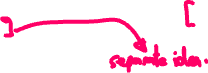 separate idea.